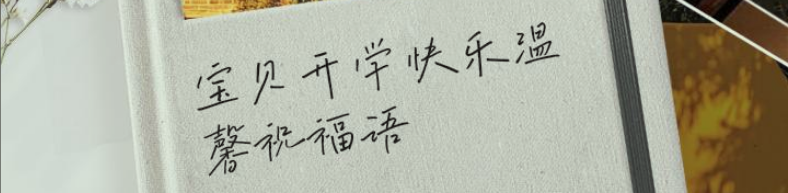 宝贝开学快乐温
馨祝福语